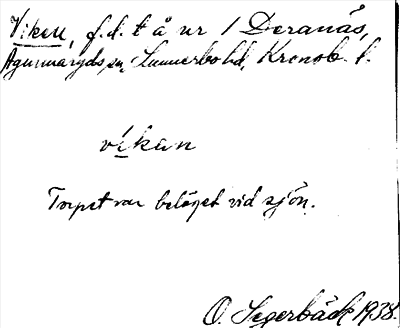 Viken, f.d. t å nr 1 Deranäs,
Agunnaryds sn, Sunnerbo hd, Kronob. l.
vikan
Torpet var beläget vid sjön.
O. Segerbäck 1938.